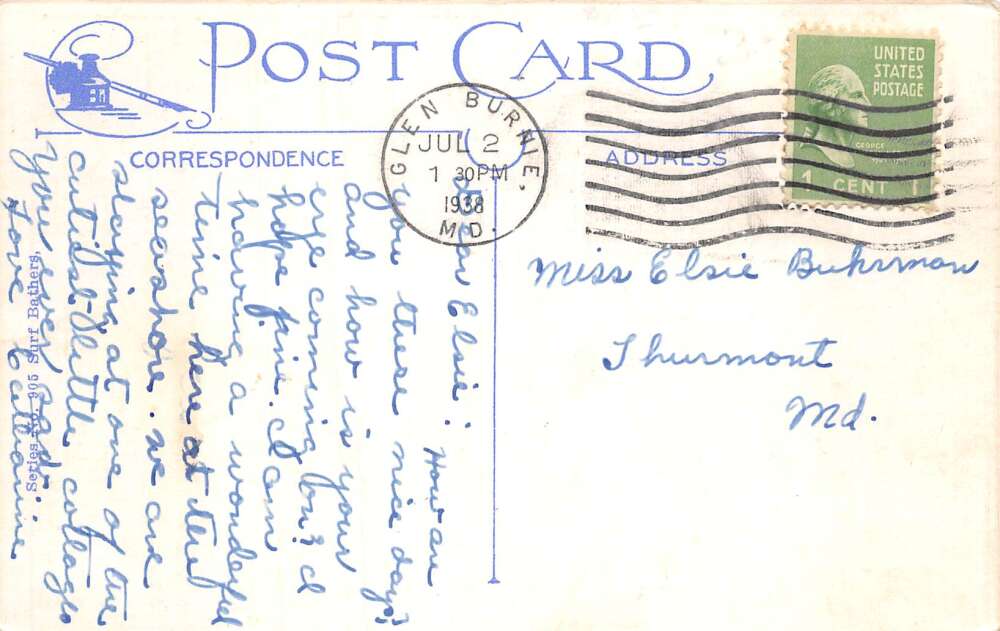 POST CARD
CORRESPONDENCE
ADDRESS
GLEN BURNIE,
JUL 2
1 30PM
1938
MD.
UNITED
STATES
POSTAGE
GEORGE
1 CENT 1
Miss Elsie Buhrman
Thurmont
Md.
Dear Elsie: How are
you these nice days?
and how is your
eye coming on? I
hope fine. I am
having a wonderful
time here at the
seashore. We are
staying at one of the
cutist little cottages
you ever saw.
Love
Series No. 905 Surf Bathers.